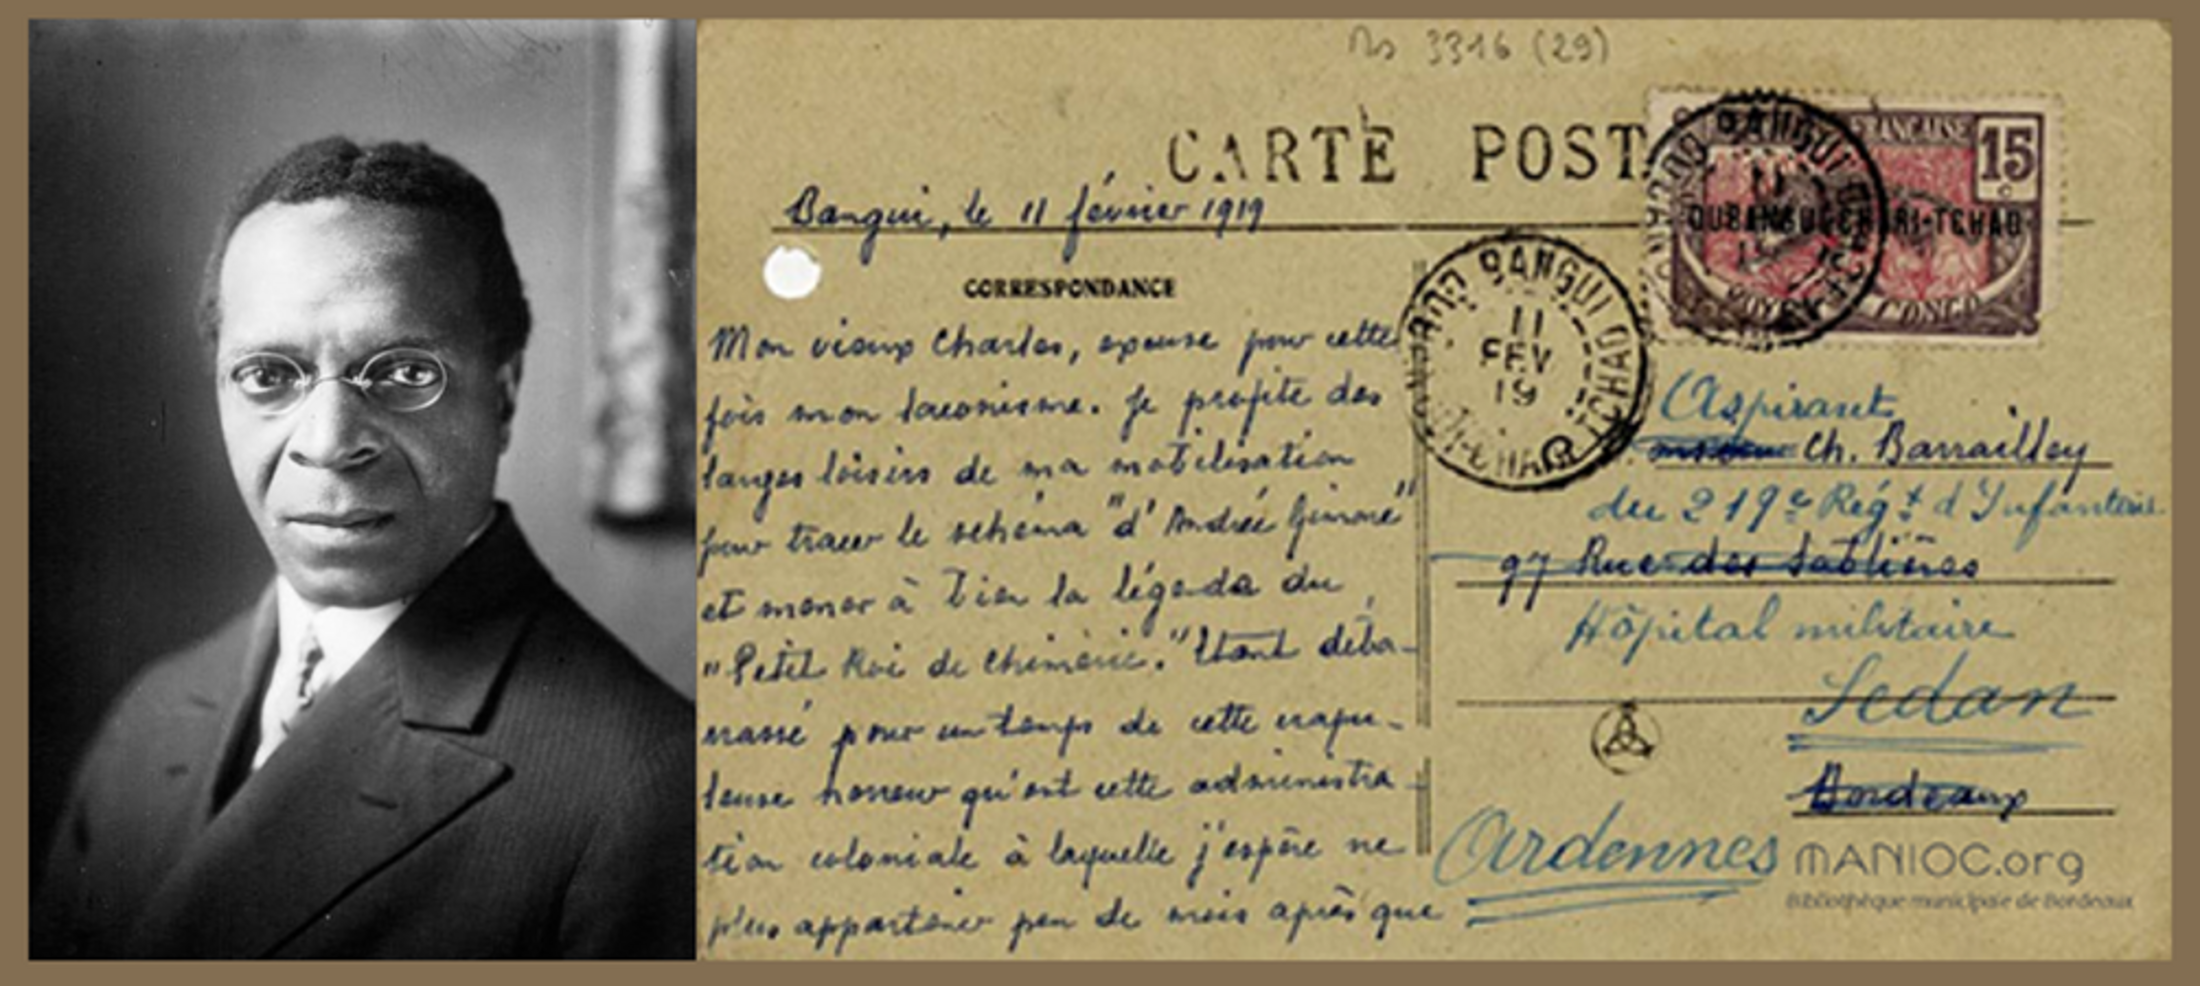 Ms 3316 (29)
CARTE POST
Bangui, le 11 février 1919
CORRESPONDANCE
Mon vieux Charles, excuse pour cette
fois mon laconisme. Je profite des
longs loisirs de ma mobilisation
pour tracer le schéma "d'André
et mener à bien la légende du
"Petit Roi de Chimérie." Etant déba-
rrassé pour un temps de cette crapu-
leuse horreur qu'est cette administra-
tion coloniale à laquelle j'espère ne
plus appartenir peu de mois après que
15
OUBANGUI-CHARI-TCHAD
MOYEN CONGO
BANGUI
BANGUI
11
FEV
19
TCHAD
Aspirant
Ch. Barrailley
du 219e Régt d'Infanterie
97 Rue des Sablières
Hôpital militaire
Sedan
Bordeaux
Ardennes
MANIOC.org
Bibliothèque municipale de Bordeaux